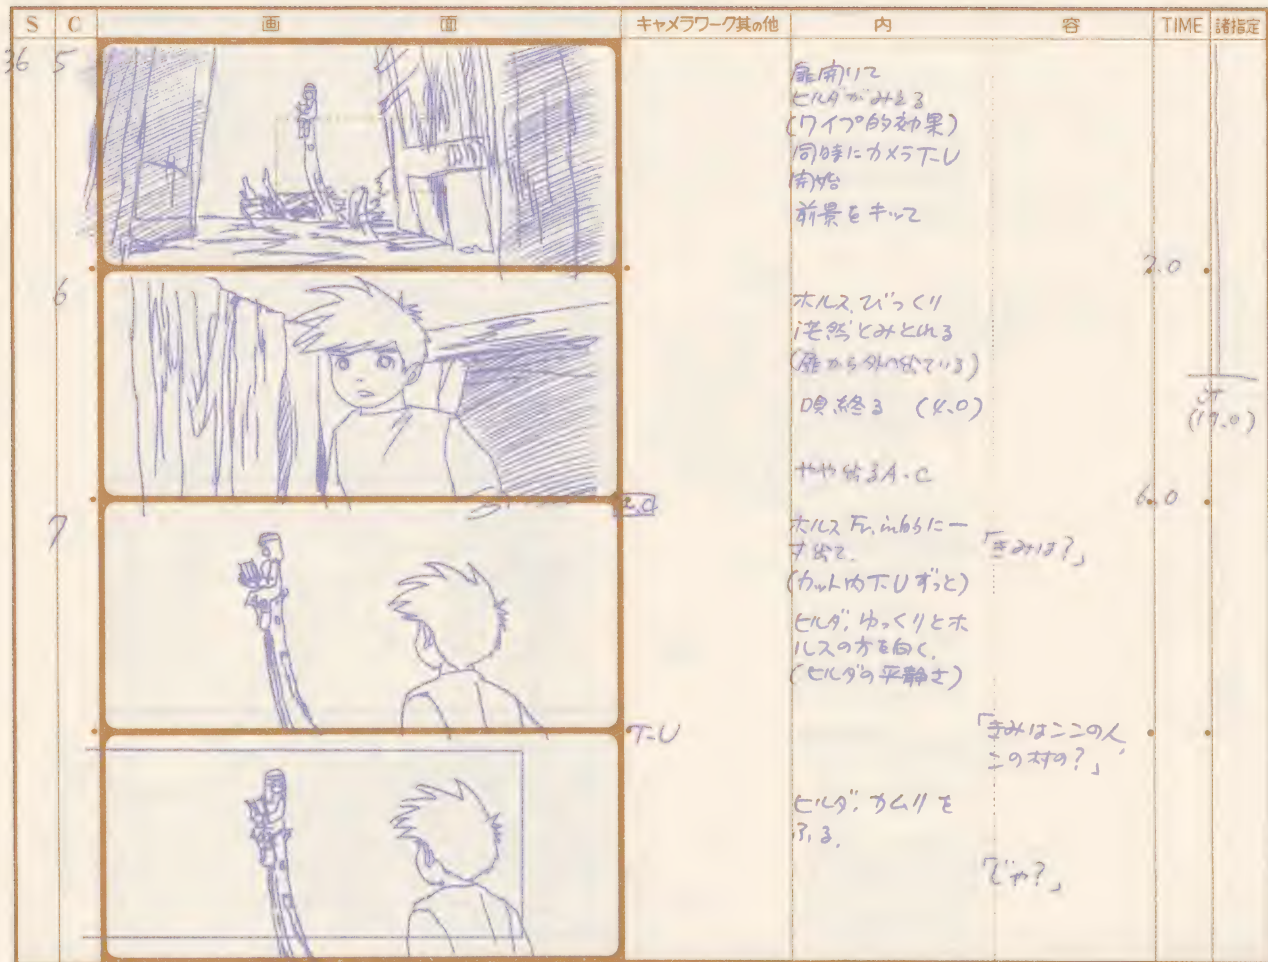 S C 画 面 キャメラワーク其の他 内 容 TIME 諸指定
36 5
扉開いて
ヒルダがみえる
(ワイプ的効果)
同時にカメラT-U
開始
前景をキッて
7.0
6
ホルス、びっくり
茫然とみとれる
(扉から外へ出ている)
唄終る (4.0)
やや出るA.C
6.0
計
(17.0)
7
ホルス Fr.in的に一
寸出て、
「きみは?」
(カット内T-Uずっと)
ヒルダ、ゆっくりとホ
ルスの方を向く、
(ヒルダの平静さ)
T-U
「きみはここの人、
この村の?」
ヒルダ、カムリを
ふる、
「じゃ?」